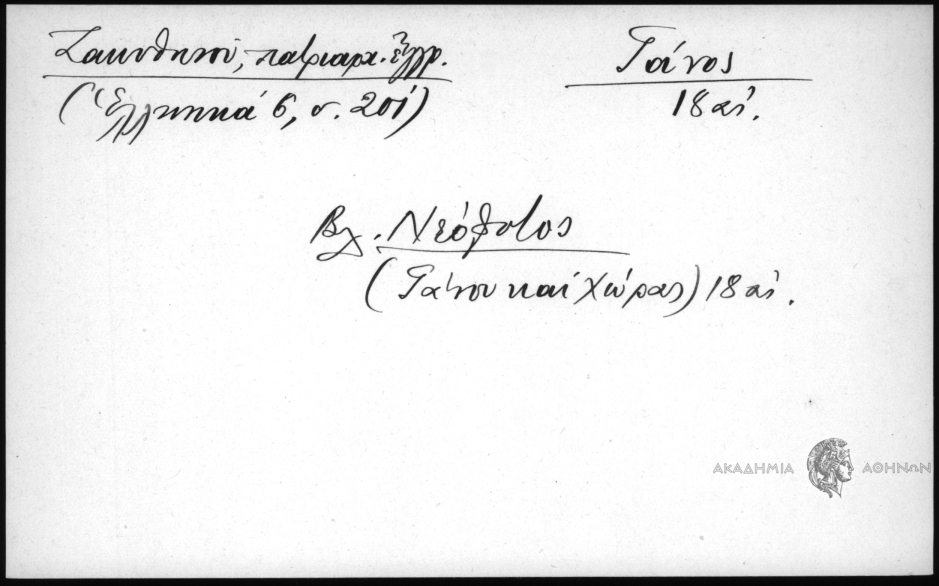 Ζακυθηνοῦ, πατριαρχ. ἔγγρ.
(Ἑλληνικά 6, σ. 201)
Γάνος
18 αἰ.
Βλ. Νεόφυτος
(Γάνου καί Χώρας) 18 αἰ.
ΑΚΑΔΗΜΙΑ ΑΘΗΝΩΝ